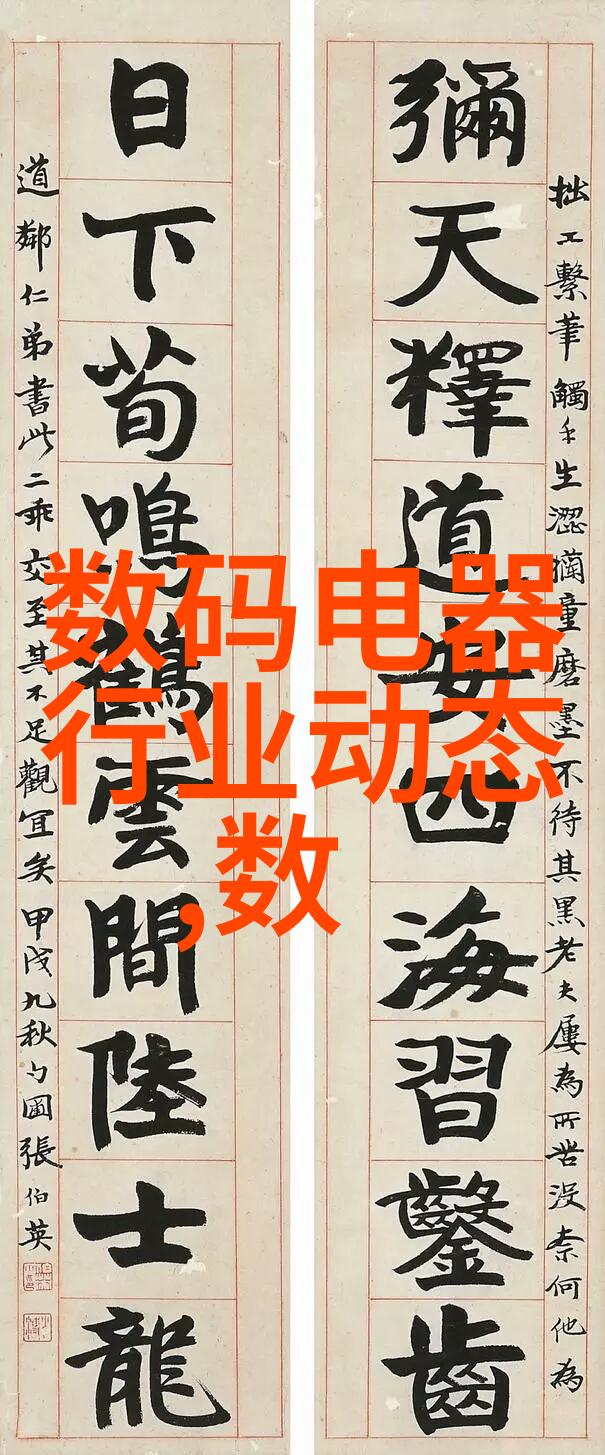 数码电器
行业动态
,数
彌天釋道安四海習鑿齒
拙工繫筆觸手生澀獺童磨墨不待其黑老夫屢為所苦没柰何他為
日下荀鳴鶴雲間陸士龍
道鄰仁弟書此二乖交至其不足觀冝矣甲戌九秋勺圃張伯英